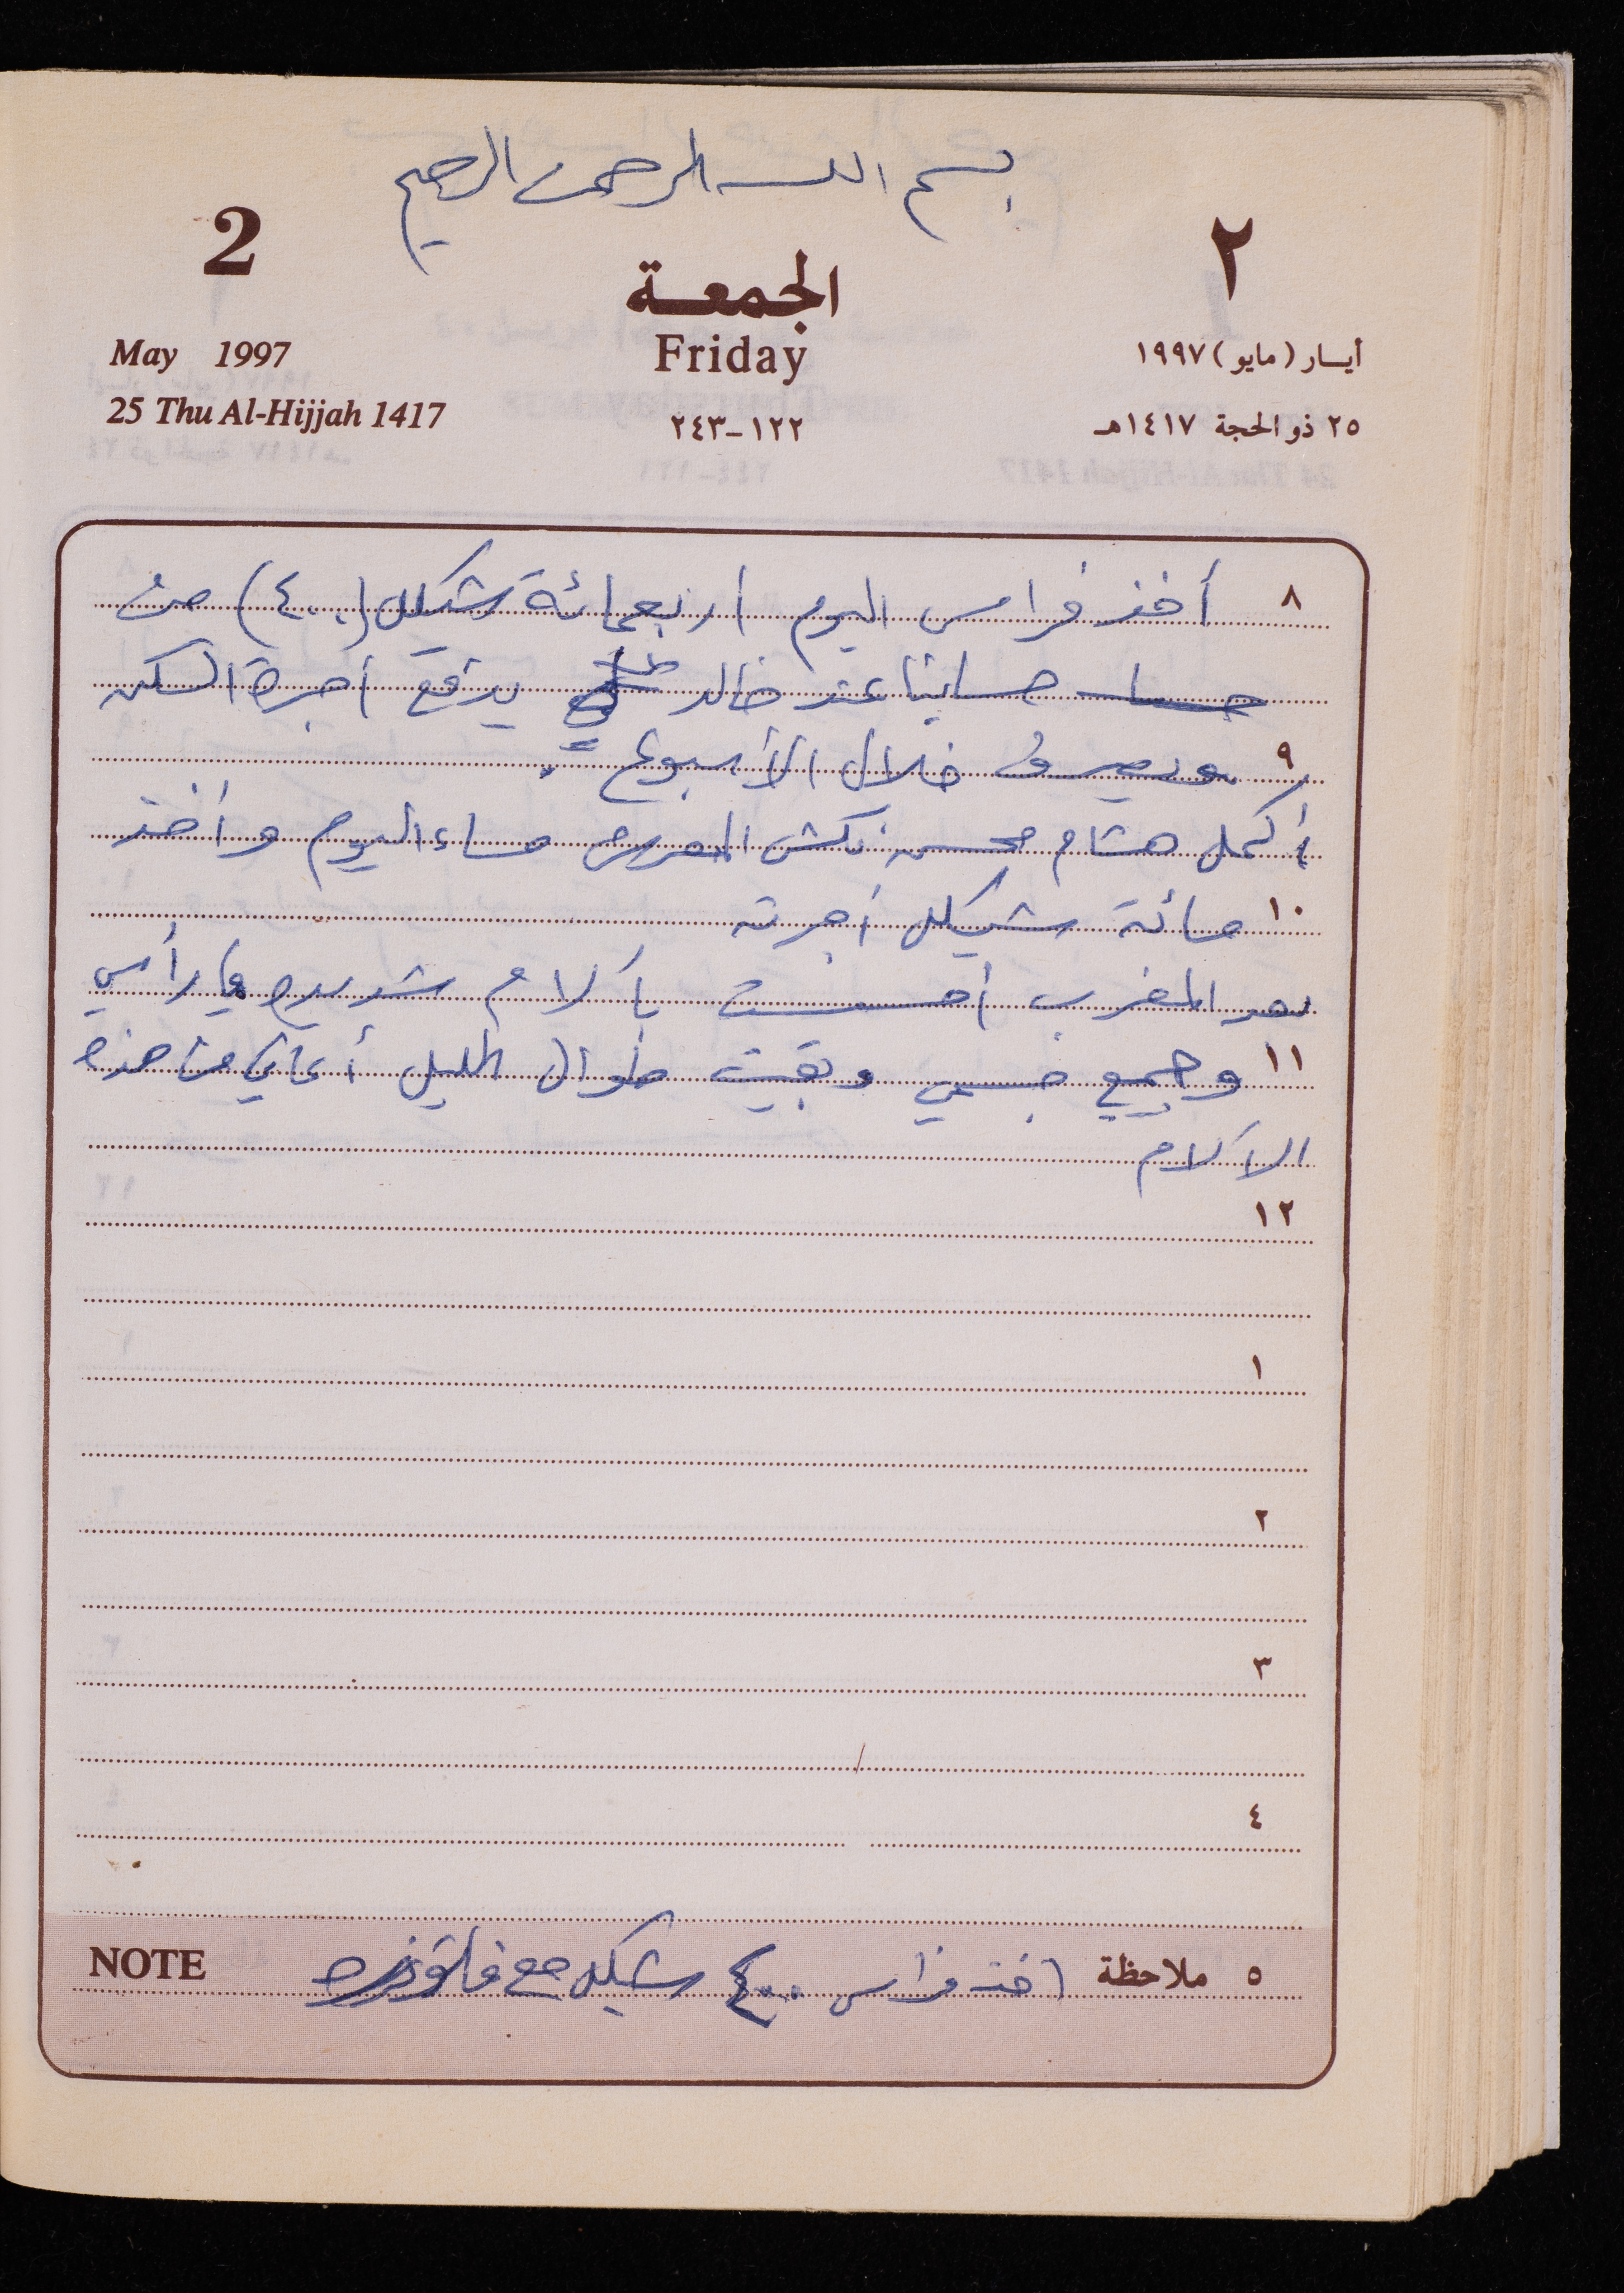 بسم الله الرحمن الرحيم
2
٢
الجمعة
May 1997
Friday
أيـار (مايو) ١٩٩٧
25 Thu Al-Hijjah 1417
١٢٢-٢٤٣
٢٥ ذو الحجة ١٤١٧هـ
٨ أخذ فراس اليوم اربعمائة شيكل (٤٠٠) من
حسابنا عند خالد يدفع أجرة السكن
٩ ويصرف خلال الأسبوع
أكمل هشام محسن نكش المعرش مساء اليوم وأخذ
١٠ مائة شيكل أجرته
بعد المغرب أحسست بآلام شديدة في رأسي
١١ وجميع جسمي وبقيت طوال الليل أعاني من هذه
الآلام
١٢
١
٢
٣
٤
٥ ملاحظة اخذ فراس ٤٠٠ شيكل مع
NOTE